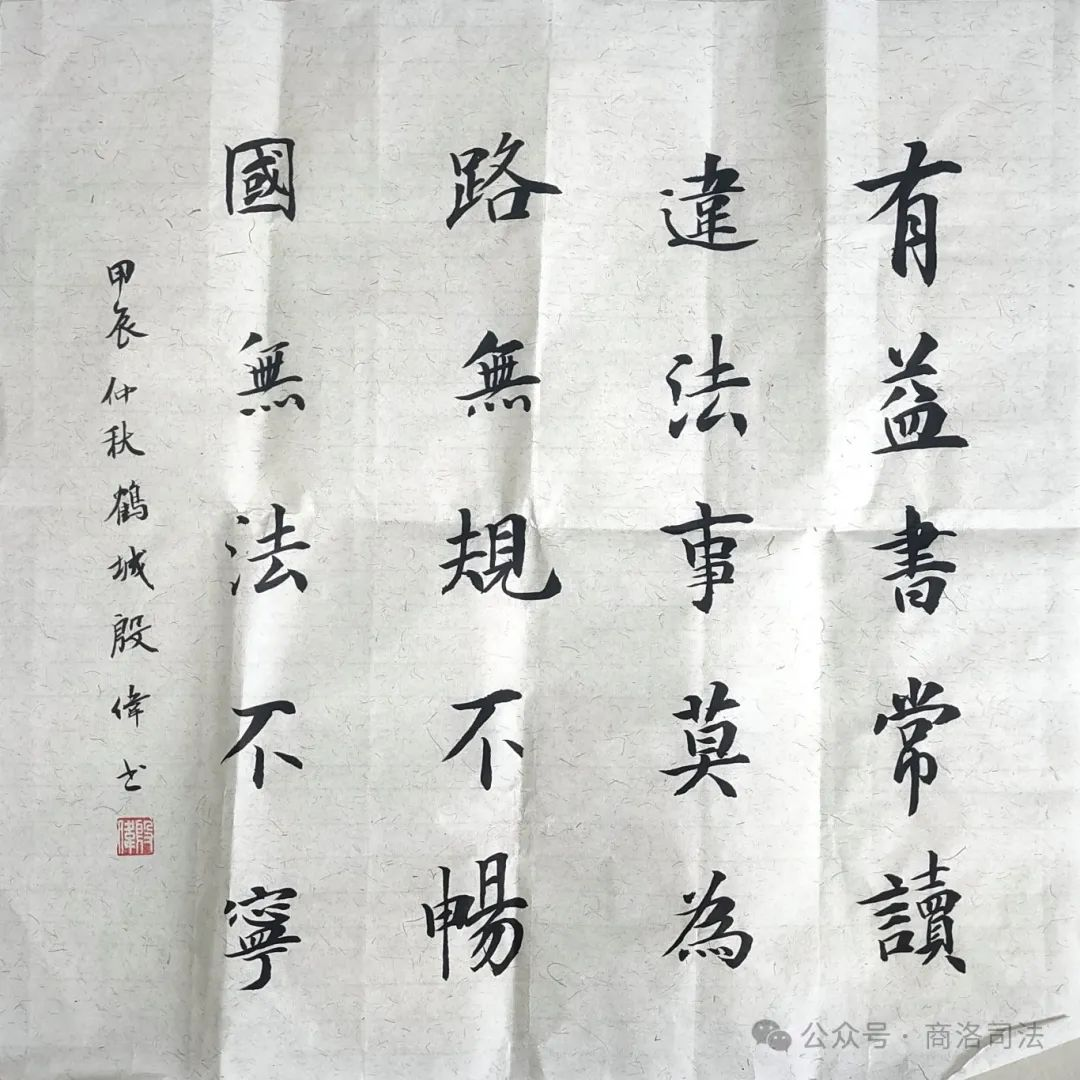 有益書常讀
違法事莫為
路無規不暢
國無法不寧
甲辰仲秋鶴城殷偉书
殷偉
公众号·商洛司法